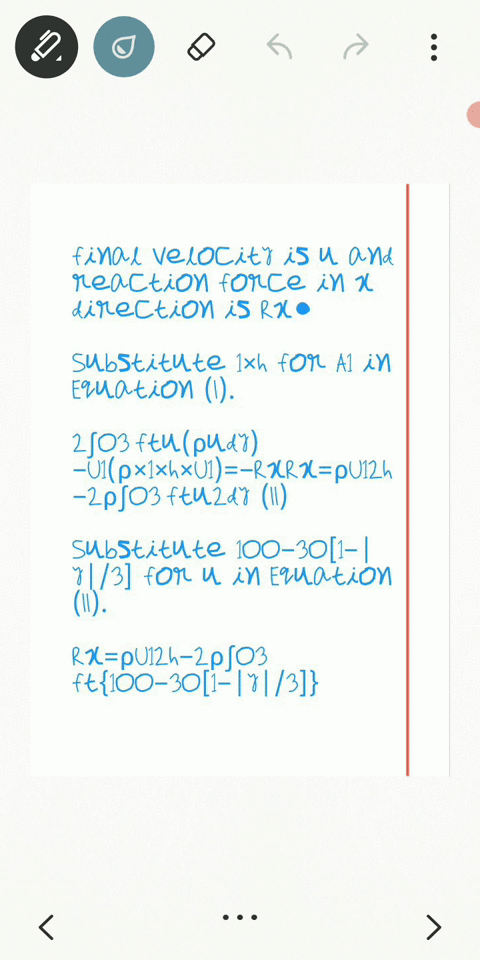 final velocity is u and
reaction force in x
direction is Rx●
Substitute 1×h for A1 in
Equation (I).
2∫03 ftu(ρudy)
-U1(ρ×1×h×U1)=-RxRx=ρU12h
-2ρ∫03 ftu2dy (II)
Substitute 100-30[1-|
y|/3] for u in Equation
(II).
Rx=ρU12h-2ρ∫03
ft{100-30[1-|y|/3]}